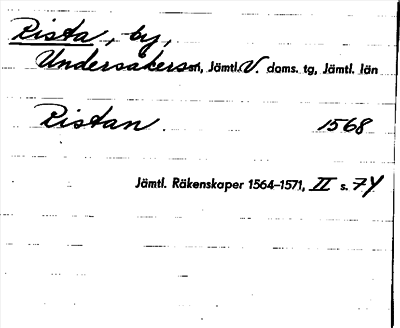 Rista, by,
Undersåkers sn, Jämtl. V. doms. tg, Jämtl. län
Ristan. 1568
Jämtl. Räkenskaper 1564–1571, II s. 74